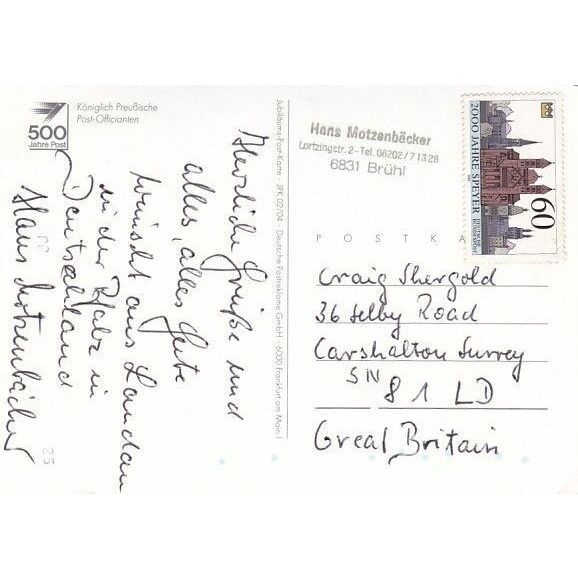 500
Jahre Post
Königlich Preußische
Post-Officianten
Herzliche Grüße und
alles, alles Gute
wünscht aus Landau
in der Pfalz in
Deutschland
Hans Motzenbäcker
25
Jubiläums-Post-Karte · JPK 02/04 · Deutsche Postreklame GmbH · 6000 Frankfurt am Main 1
Hans Motzenbäcker
Lortzingstr. 2 - Tel. 06202/71328
6831 Brühl
2000 JAHRE SPEYER
60
DEUTSCHE
BUNDESPOST
POSTKA
Craig Shergold
36 Selby Road
Carshalton Surrey
SN 81 LD
Great Britain